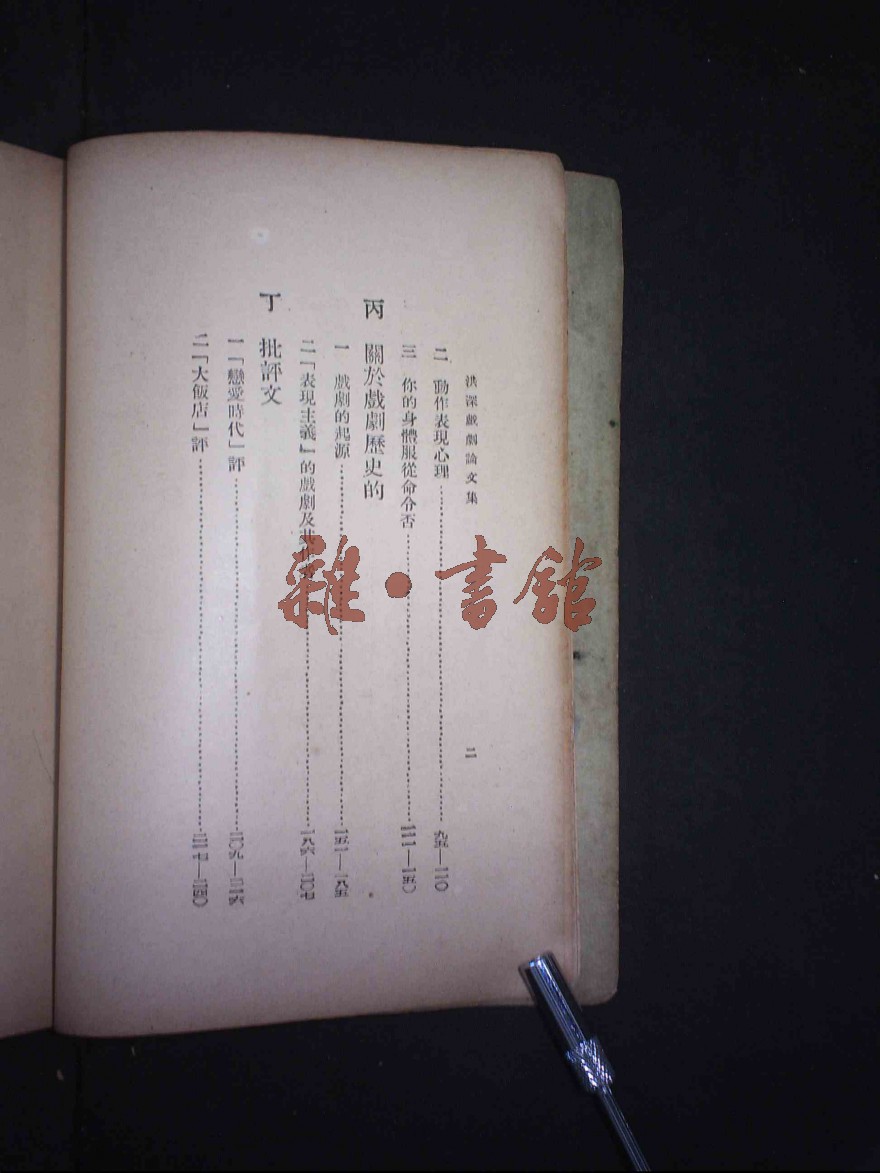 洪深戲劇論文集
二
二 動作表現心理……九五—一一〇
三 你的身體服從命令否……一一一—一五〇
丙 關於戲劇歷史的
一 戲劇的起源……一五一—一八五
二「表現主義」的戲劇及其作……一八六—二〇七
丁 批評文
一「戀愛時代」評……二〇九—二一六
二「大飯店」評……二一七—二四〇
雜·書館